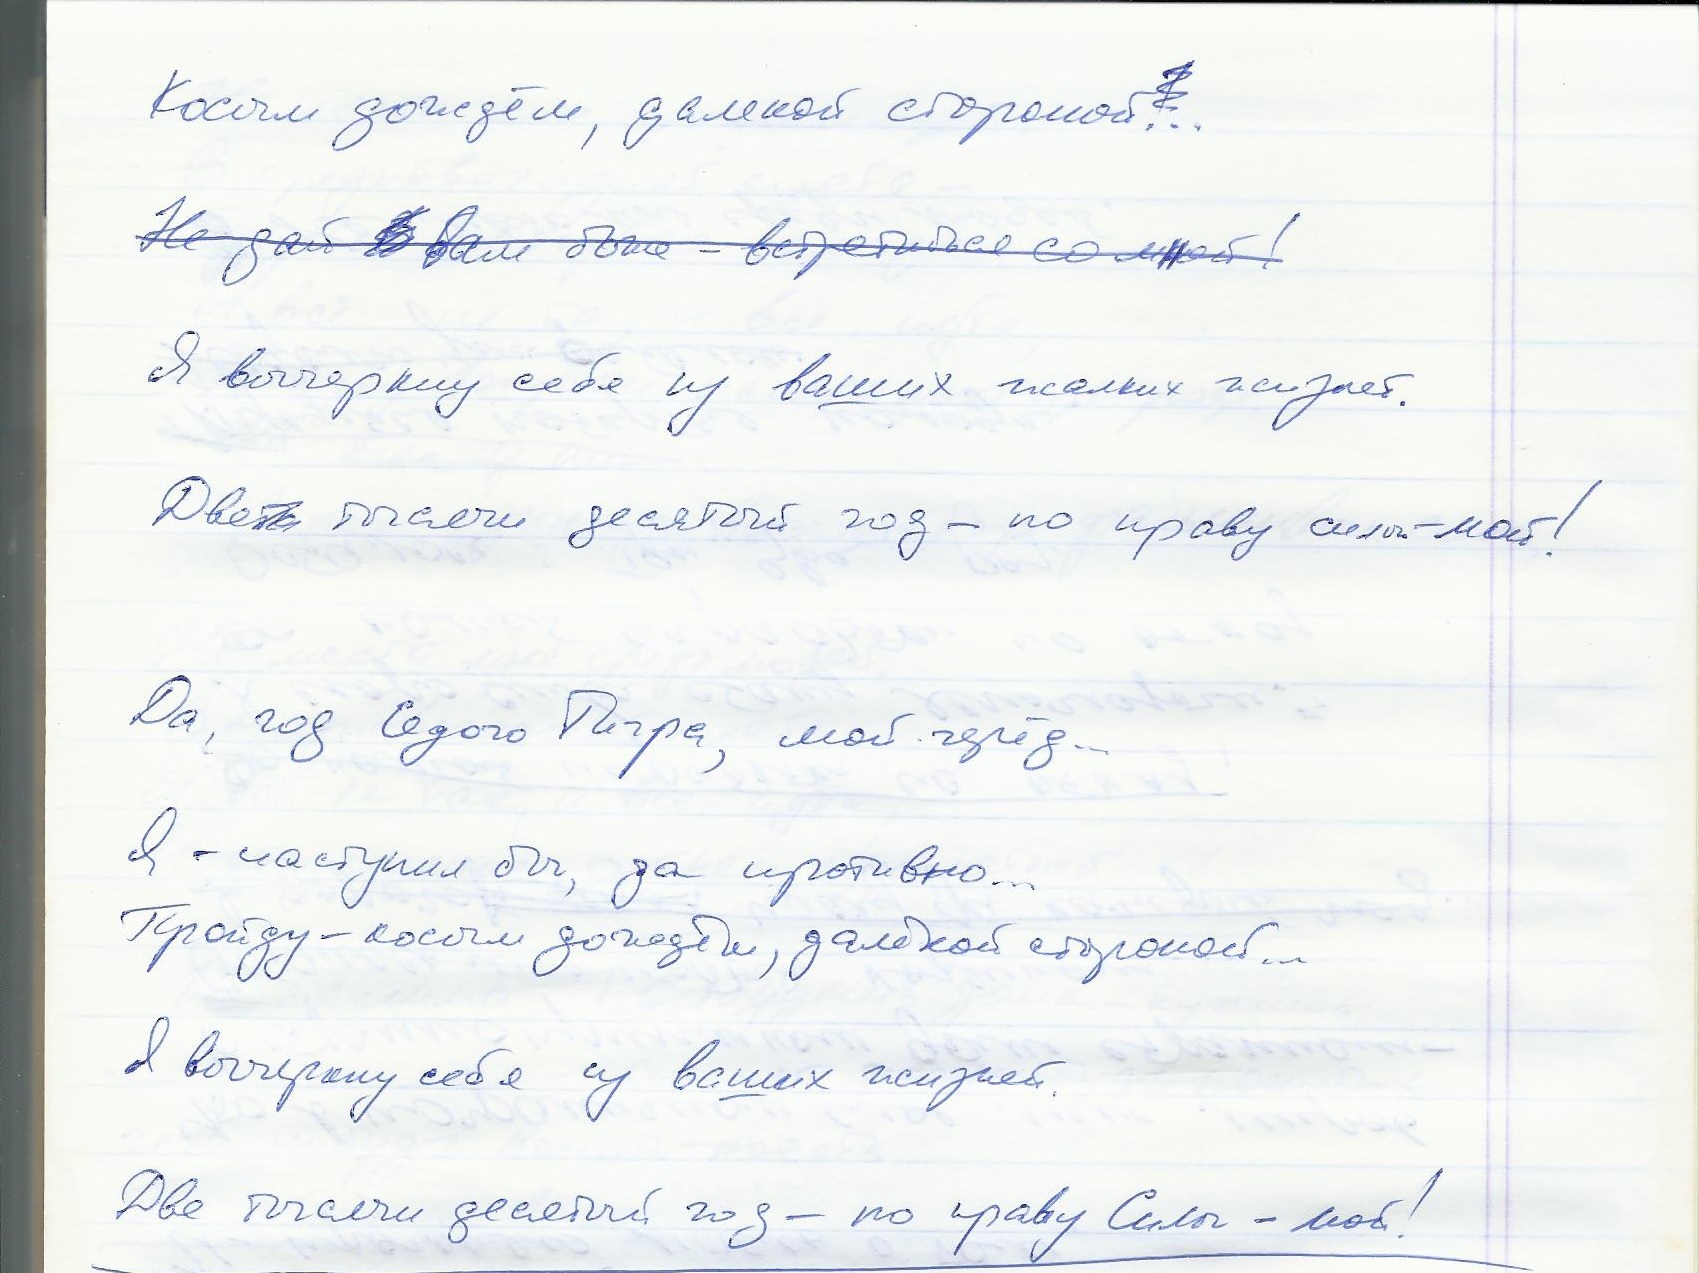 Косым дождём, далекой стороной...
Не дай Вам боже – встретиться со мной!
Я вычеркну себя из ваших жалких жизней.
Две тысячи десятый год – по праву силы – мой!
Да, год Седого Тигра, мой черёд...
Я – наступил бы, да противно...
Пройду – косым дождём, далёкой стороной...
Я вычеркну себя из ваших жизней.
Две тысячи десятый год – по праву Силы – мой!